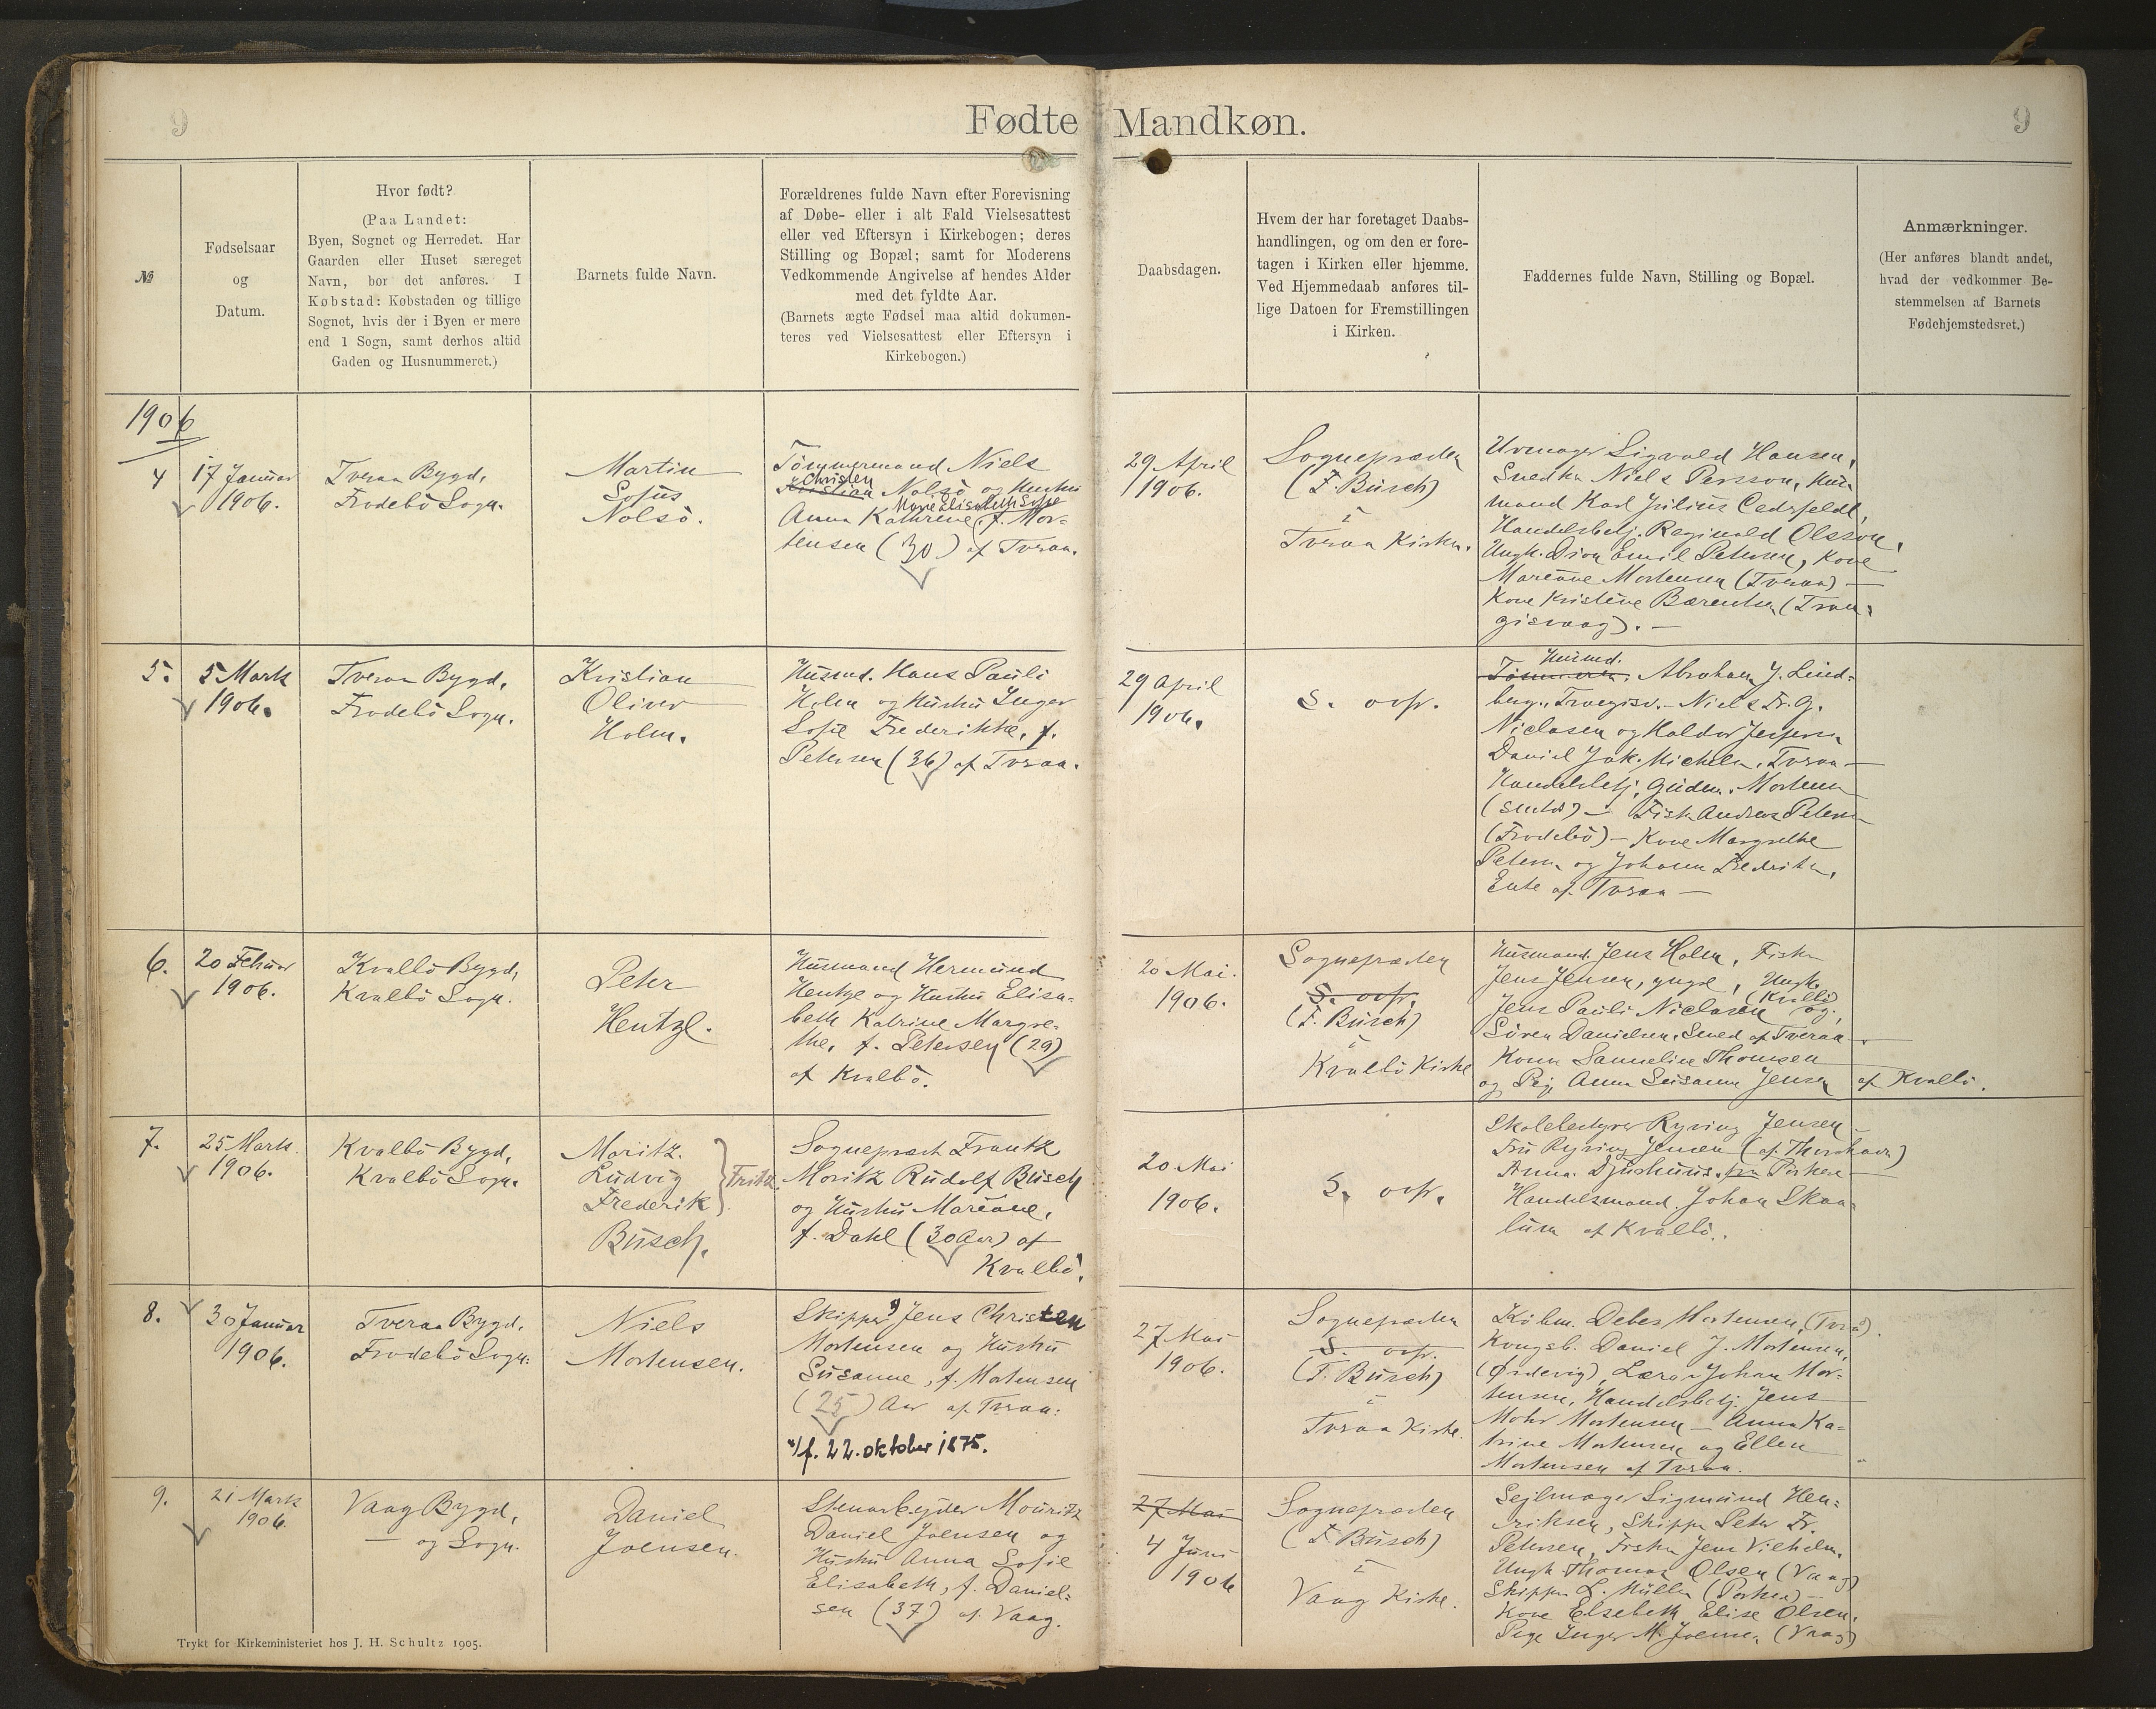 9
Fødte Mandkøn.
9
№
Fødselsaar
og
Datum.
Hvor født?
(Paa Landet:
Byen, Sognet og Herredet. Har
Gaarden eller Huset særeget
Navn, bør det anføres. I
Købstad: Købstaden og tillige
Sognet, hvis der i Byen er mere
end 1 Sogn, samt derhos altid
Gaden og Husnummeret.)
Barnets fulde Navn.
Forældrenes fulde Navn efter Forevisning
af Døbe- eller i alt Fald Vielsesattest
eller ved Eftersyn i Kirkebogen; deres
Stilling og Bopæl; samt for Moderens
Vedkommende Angivelse af hendes Alder
med det fyldte Aar.
(Barnets ægte Fødsel maa altid dokumen-
teres ved Vielsesattest eller Eftersyn i
Kirkebogen.)
Daabsdagen.
Hvem der har foretaget Daabs-
handlingen, og om den er fore-
tagen i Kirken eller hjemme.
Ved Hjemmedaab anføres til-
lige Datoen for Fremstillingen
i Kirken.
Faddernes fulde Navn, Stilling og Bopæl.
Anmærkninger.
(Her anføres blandt andet,
hvad der vedkommer Be-
stemmelsen af Barnets
Fødehjemstedsret.)
1906
4
17 Januar
1906.
Tveraa Bygd,
Frodebö Sogn.
Martin
Sofus
Nolsö.
Tömmermand Niels
Christen
Kristian Nolsö og Hustru
Anna Kathrine, f. Mor-
tensen (30) af Tveraa.
29 April
1906.
Sognepræsten
(F. Büsch)
i
Tveraa Kirke.
Urmager Sigvald Hansen,
Snedker Niels Persson, Hus-
mand Karl Julius Cedsfeldt,
Handelsbetj. Reginald Olsson,
Ungk. Emil Petersen, Kone
Mariane Mortensen (Tveraa) —
Kone Kristine Bærentsen (Tran-
gisvaag). —
5.
5 Marts
1906.
Tveraa Bygd,
Frodebö Sogn.
Kristian
Oliver
Holm.
Husmd. Hans Pauli
Holm og Hustru Inger
Sofie Frederikke, f.
Petersen (36) af Tveraa.
29 April
1906.
S. ovfr.
Husmd.
Abraham J. Lind-
berg, Trangisv. — Niels Fr. G.
Niclasen og Haldor Jespersen
Daniel Jak. Michelsen, Tveraa —
Handelsbetj. Gudm. Mortensen
— Fisk. Andreas Petersen
(Frodebö) — Kone Margrethe
Petersen og Johanne Fredrikke,
Enke af Tveraa —
6.
20 Febuar
1906.
Kvalbö Bygd,
Kvalbö Sogn.
Peter
Hentze.
Husmand Hermund
Hentze og Hustru Elisa-
beth Katrine Margre-
the, f. Petersen (29)
af Kvalbö.
20 Mai.
1906.
Sognepræsten
S. ovfr.
(F. Büsch)
i
Kvalbö Kirke
Husmand Jens Holm, Fisker
Jens Jensen, yngre, Ungk.
Jens Pauli Niclasen (Kvalbö) og
Sören Danielsen, Smed af Tveraa.
Konen Sanneline Thomsen
og Pig. Anna Susanne Jensen af Kvalbö.
7.
25 Marts.
1906.
Kvalbö Bygd,
Kvalbö Sogn.
Moritz
Ludvig
Frederik
Fritz.
Büsch.
Sognepræst Frantz
Moritz Rudolf Büsch
og Hustru Mariane,
f. Dahl (30 Aar) af
Kvalbö.
20 Mai
1906.
S. ovfr.
Skolebestyrer Ryving Jensen —
Fru Ryving Jensen (af Thorshavn)
Anna Djurhuus, fra Porkere —
Handelsmand Johan Skaa-
lum af Kvalbö.
8.
30 Januar
1906.
Tveraa Bygd,
Frodebö Sogn.
Niels
Mortensen.
Skipper *) Jens Christen
Mortensen og Hustru
Susanne, f. Mortensen
(25) Aar af Tveraa.
*) f. 22. oktober 1875.
27 Mai
1906.
Sognepræsten
S. ovfr.
(F. Büsch)
i
Tveraa Kirke.
Köbm. Debes Mortensen, (Tveraa).
Kongsb. Daniel J. Mortensen,
(Ördevig), Lærer Johan Mor-
tensen, Handelsbetj. Jens
Mohr Mortensen — Anna Ka-
trine Mortensen og Ellen
Mortensen af Tveraa.
9.
21 Marts
1906.
Vaag Bygd,
— og Sogn.
Daniel
Joensen.
Stenarbejder Mouritz
Daniel Joensen og
Hustru Anna Sofie
Elisabeth, f. Daniel-
sen (37) af Vaag.
27 Mai
4 Juni
1906
Sognepræsten
(F. Büsch)
i
Vaag Kirke.
Sejlmager Sigmund Hen-
riksen, Skipper Peter Fr.
Petersen, Fisker Jens Vilhelm,
Ungk Thomas Olsen (Vaag)
Skipper L. Müller (Porkere) —
Kone Elsebeth Elise Olsen,
Pige Inger M. Joensen (Vaag)
Trykt for Kirkeministeriet hos J. H. Schultz 1905.